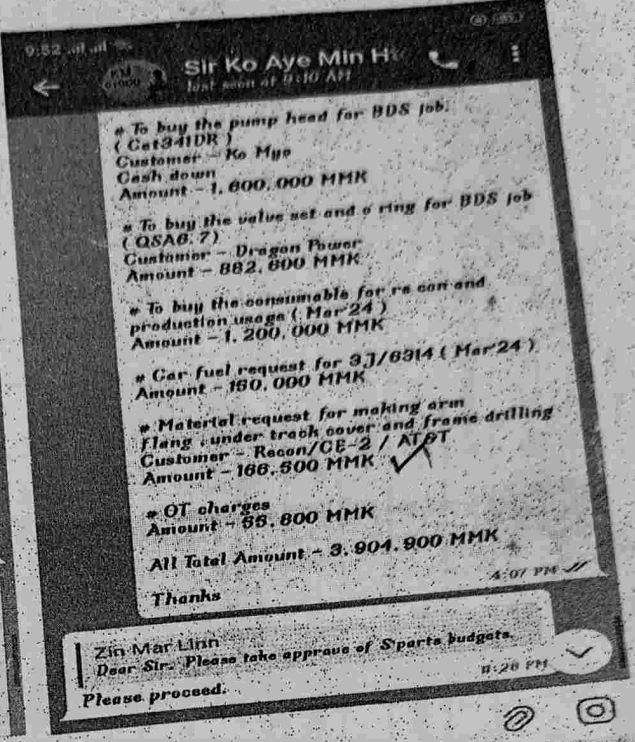 9:52
Sir Ko Aye Min H
last seen at 9:10 AM
# To buy the pump head for BDS job.
( Cat341DR )
Customer - Ko Myo
Cash down
Amount - 1,600,000 MMK
# To buy the valve set and o ring for BDS job
( QSA6.7)
Customer - Dragon Power
Amount - 882,600 MMK
# To buy the consumable for re con and
production usage ( Mar'24 )
Amount - 1,200,000 MMK
# Car fuel request for 3J/6314 ( Mar'24 )
Amount - 150,000 MMK
# Material request for making arm
flang , under track cover and frame drilling
Customer - Recon/CE-2 / AT&T
Amount - 166,500 MMK
# OT charges
Amount - 55,800 MMK
All Total Amount - 3,904,900 MMK
Thanks
4:07 PM
Zin Mar Linn
Dear Sir. Please take approve of S'parts budgets.
Please proceed.